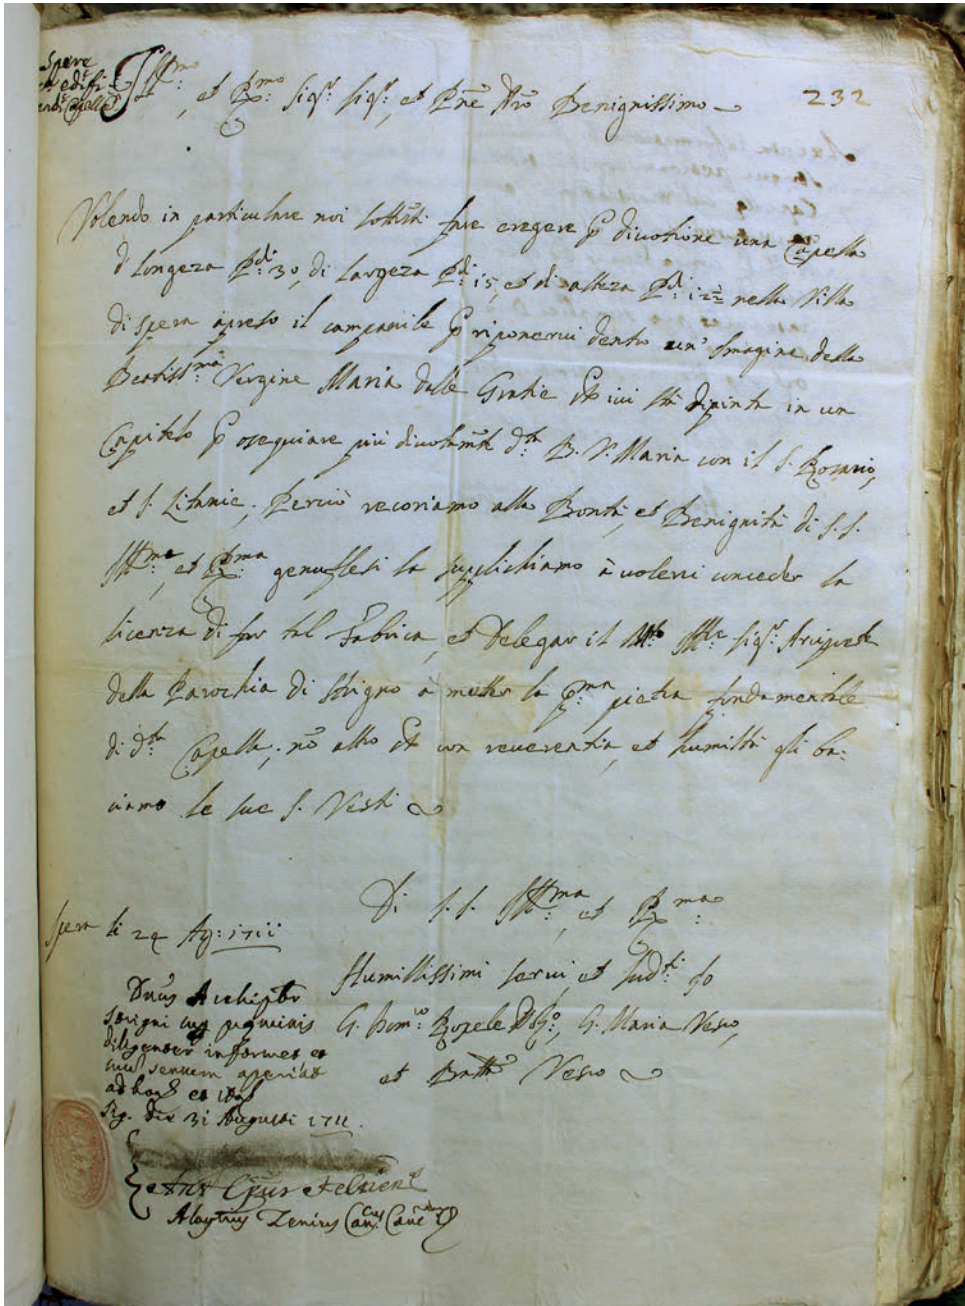 Spere
edifi
Capella
Ill:mo, et R:mo Sig:r Sig:r, et Pnē Arō Benignissimo
232
Volendo in particulare noi sottti fare eregere p divotione una Capella
d longeza P:di 30, di largeza P:di 15, et di alteza P:di 12½ nella Villa
di Spera apreso il campanile p riponervi dentro un' Imagine della
Beatiss:ma Vergine Maria delle Gratie ch ivi sta dipinta in un
Capitelo p osequiare più divotamte d:ta B. V. Maria con il S. Rosario,
et S. Litanie; Perciò recoriamo alla Bontà, et Benignità di S.S.
Ill:ma, et R:ma genuflesi la supplichiamo à volervi conceder la
licenza di far tal Fabrica, et Delegar il Ill:re Sig:r Arciprete
della Parochia di Strigno à metter la p:ma pietra fondamentale
di d:ta Capella; nō altro ch con reverentia, et humiltà gli ba:
ciamo le sue S. Vesti
Di S.S. Ill:ma, et R:ma
Spera li 24 Ag: 1711
Humillissimi servi, et sud:ti
G. Dom:co Ropele, G. Maria Vesco,
et Batta Vesco
Dnus Archipbr
Strigni
diligenter informet et
suū sensum aperiat
ad hoc et
Sig. die 31 Augusti 1711.
Ant Epus Feltren
Aloysius Zenirus Can:cus Canc